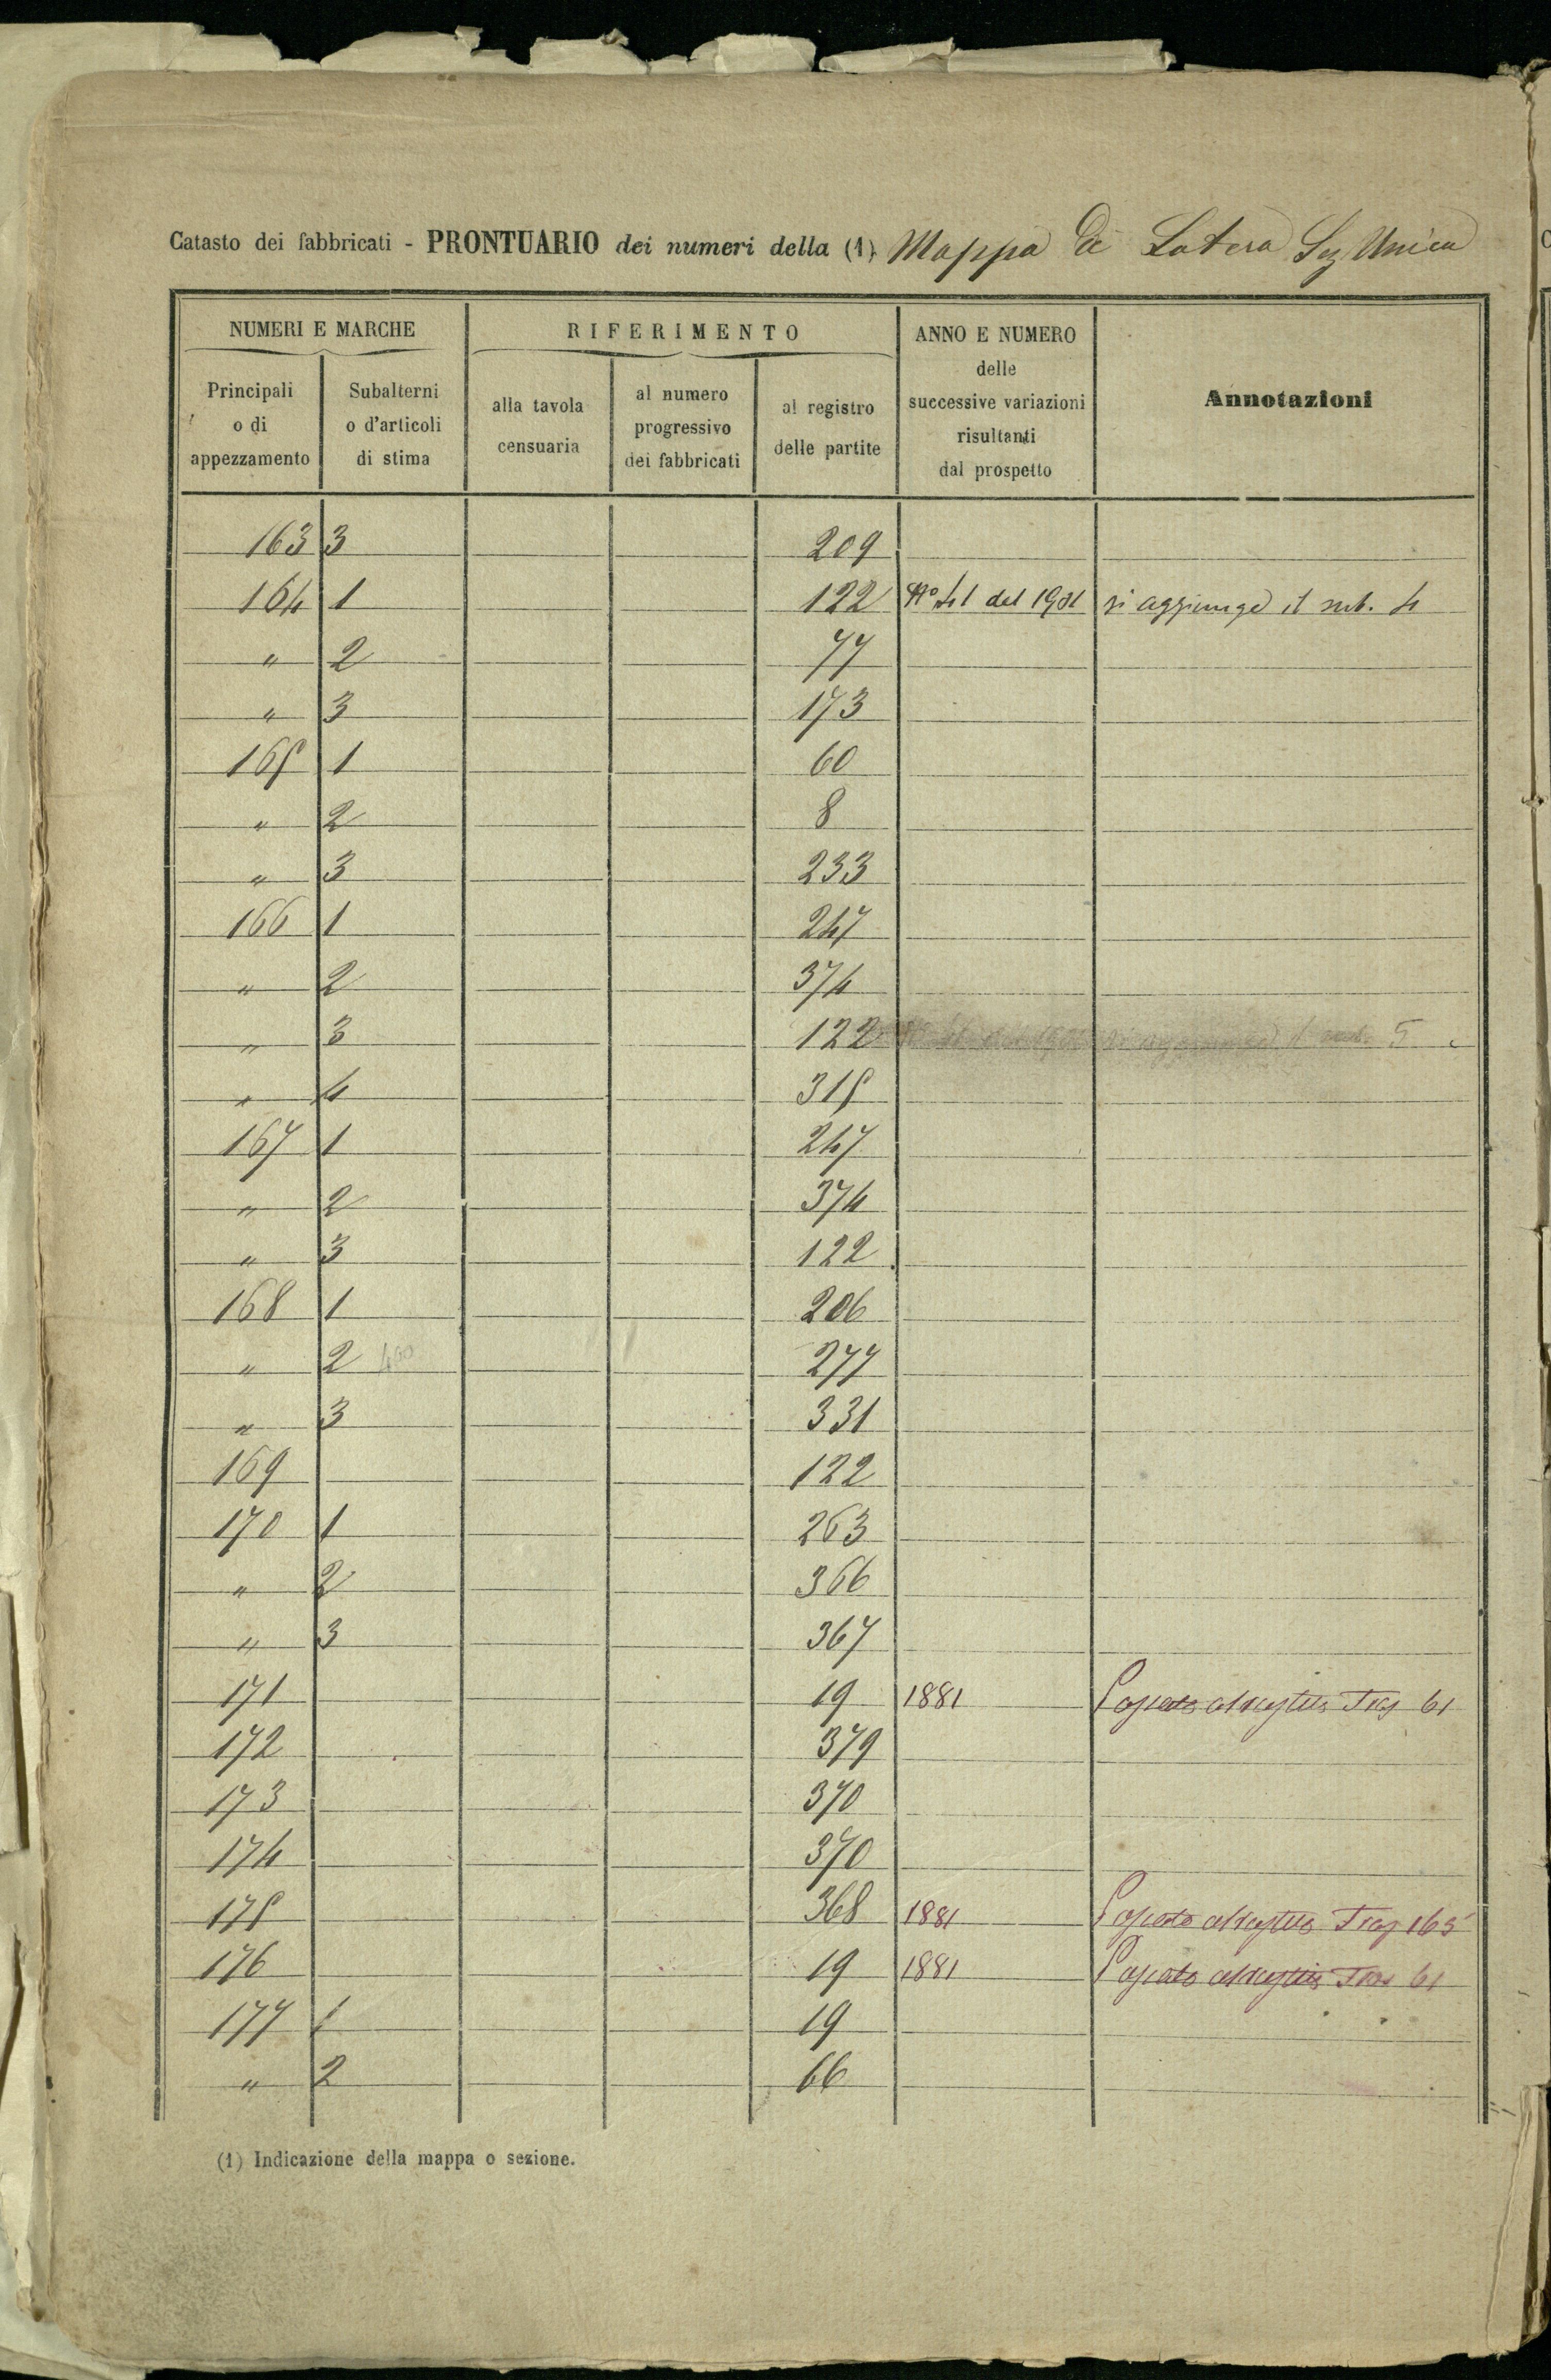 Catasto dei fabbricati - PRONTUARIO dei numeri della (1) Mappa di Latera Sez Unica
NUMERI E MARCHE
RIFERIMENTO
ANNO E NUMERO
delle
successive variazioni
risultanti
dal prospetto
Annotazioni
Principali
o di
appezzamento
Subalterni
o d'articoli
di stima
alla tavola
censuaria
al numero
progressivo
dei fabbricati
al registro
delle partite
163 3 209
164 1 122 N° 41 del 1901 si aggiunge il sub. 4
" 2 77
" 3 173
165 1 60
" 2 8
" 3 233
166 1 247
" 2 374
" 3 122 si aggiunge il sub. 5
" 4 315
167 1 247
" 2 374
" 3 122
168 1 206
" 2 400 277
" 3 331
169 122
170 1 263
" 2 366
" 3 367
171 19 1881 61
172 379
173 370
174 370
175 368 1881 165
176 19 1881 61
177 1 19
" 2 66
(1) Indicazione della mappa o sezione.